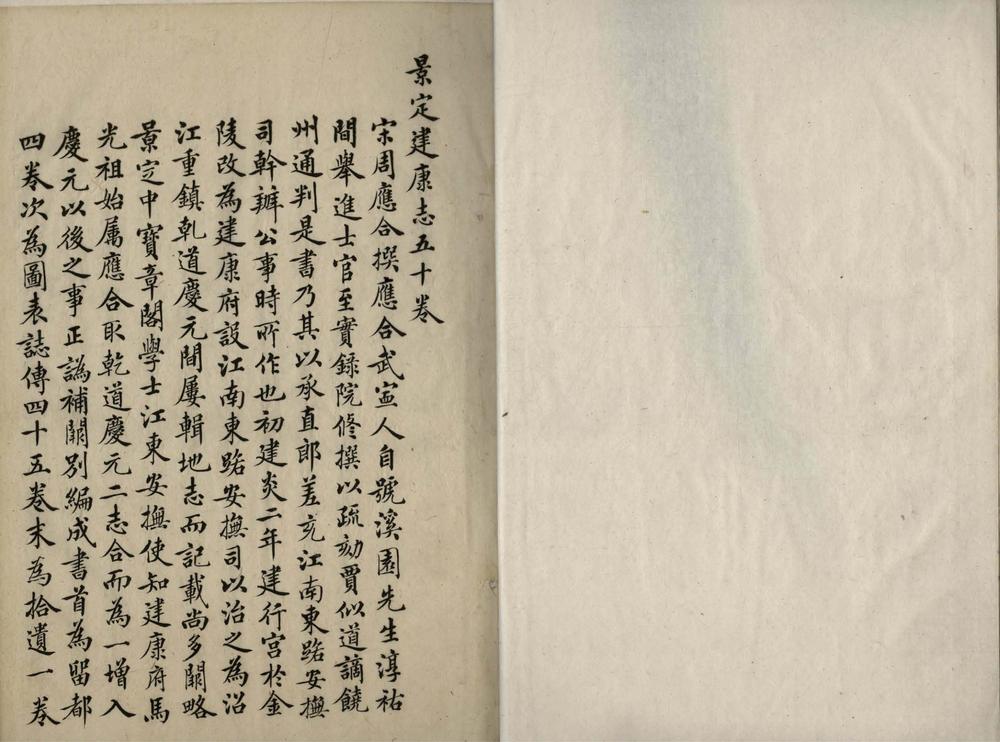 景定建康志五十卷
宋周應合撰應合武寧人自號溪園先生淳祐
間舉進士官至實錄院修撰以疏劾賈似道謫饒
州通判是書乃其以承直郎差充江南東路安撫
司幹辦公事時所作也初建炎二年建行宮於金
陵改為建康府設江南東路安撫司以治之為沿
江重鎮乹道慶元間屢輯地志而記載尚多闕略
景定中寶章閣學士江東安撫使知建康府馬
光祖始属應合取乾道慶元二志合而為一增入
慶元以後之事正譌補闕別編成書首為留都
四卷次為圖表誌傳四十五卷末為拾遺一卷